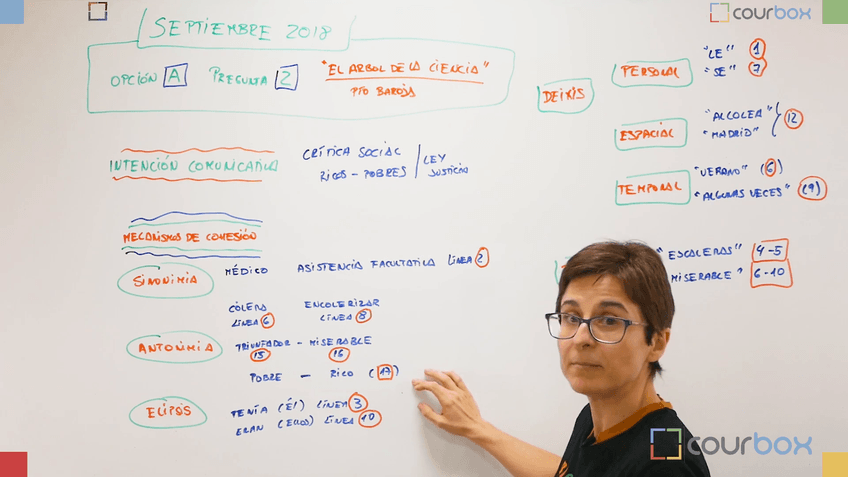 courbox
SEPTIEMBRE 2018
OPCIÓN A PREGUNTA 2 "EL ARBOL DE LA CIENCIA"
PÍO BAROJA
INTENCIÓN COMUNICATIVA
CRÍTICA SOCIAL
RICOS - POBRES LEY
JUSTICIA
MECANISMOS DE COHESIÓN
SINONIMIA MÉDICO ASISTENCIA FACULTATIVA LÍNEA 2
CÓLERA ENCOLERIZAR
LÍNEA 6 LÍNEA 8
ANTONIMIA TRIUNFADOR - MISERABLE
15 16
POBRE - RICO (17)
ELIPSIS TENÍA (ÉL) LÍNEA 3
ERAN (ELLOS) LÍNEA 10
DEIXIS
PERSONAL "LE" 1
"SE" 7
ESPACIAL "ALCOLEA"
"MADRID" 12
TEMPORAL "VERANO" (6)
"ALGUNAS VECES" (9)
"ESCALERAS" 4-5
MISERABLE" 6-10
courbox